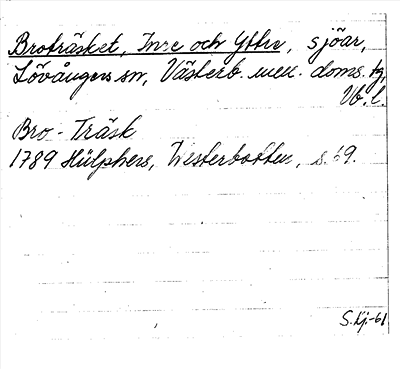 Broträsket, Inre och Yttre, sjöar,
Lövångers sn, Västerb. mell. doms. tg,
Vb. l.
Bro-Träsk
1789 Hülphers, Westerbotten, s. 69.
S.Lj-61